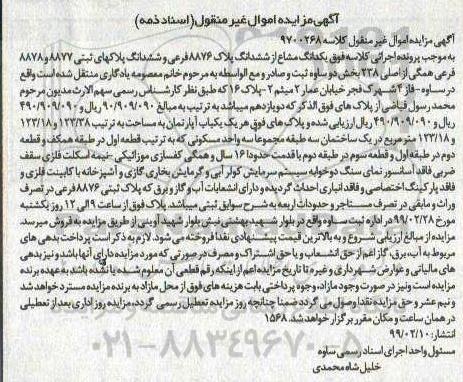 آگهی مزایده اموال غیر منقول (اسناد ذمه)
آگهی مزایده اموال غیر منقول کلاسه ۹۷۰۰۲۶۸
به موجب پرونده اجرائی کلاسه فوق یکدانگ مشاع از ششدانگ پلاک ۸۸۷۶ فرعی و ششدانگ پلاکهای ثبتی ۸۸۷۷ و ۸۸۷۸
فرعی همگی از اصلی ۲۳۸ بخش دو ساوه ثبت و صادر و مع الواسطه به مرحوم خانم معصومه یادگاری منتقل شده است واقع
در ساوه - فاز ۴ شهرک فجر خیابان عمار ۲ میثم ۲ - پلاک ۱۶ که طبق نظر کارشناس رسمی سهم الارث مدیون مرحوم
محمد رسول فیاضی از پلاک های فوق الذکر که دویازدهم میباشد به ترتیب به مبالغ ۹۰/۹۰۹/۰۹۰ ریال و ۴۹۰/۹۰۹/۰۹۰
ریال و ۴۹۰/۹۰۹/۰۹۰ ریال ارزیابی شده و پلاک های فوق هر یک یکباب آپارتمان به مساحت به ترتیب ۱۲۳/۳۸ و ۱۲۳/۱۸
و ۱۳۳/۱۸ متر مربع در یک ساختمان سه طبقه مجموعا سه واحد مسکونی که به ترتیب قطعه اول در طبقه همکف و قطعه
دوم در طبقه اول و قطعه سوم در طبقه دوم با قدمت حدودا ۱۶ سال و همگی کفسازی موزائیکی - نیمه اسکلت فلزی سقف
ضربی فاقد آسانسور نمای سنگ دو خوابه سیستم سرمایش کولر آبی و گرمایش بخاری گازی و آشپزخانه با کابینت فلزی و
فاقد پارکینگ اختصاصی و فاقد انباری احداث گردیده و دارای انشعابات آب و گاز و برق که پلاک ثبتی ۸۸۷۶ فرعی در تصرف
وراث و مابقی در تصرف مستاجر و حدودات اربعه به شرح سوابق ثبتی میباشد. پلاک فوق از ساعت ۹ الی ۱۲ روز یکشنبه
مورخ ۹۹/۰۲/۲۸ در اداره ثبت ساوه واقع در بلوار شهید بهشتی نبش بلوار شهید آوینی از طریق مزایده به فروش میرسد
مزایده از مبالغ ارزیابی شروع و به بالاترین قیمت پیشنهادی نقدا فروخته می شود. لازم به ذکر است پرداخت بدهی های
مربوط به آب، برق، گاز اعم از حق انشعاب و یا حق اشتراک و مصرف در صورتی که مورد مزایده دارای آنها باشد و نیز بدهی
های مالیاتی و عوارض شهرداری و غیره تا تاریخ مزایده اعم از اینکه رقم قطعی آن معلوم شده یا نشده باشد به عهده برنده
مزایده است ونیز در صورت وجود مازاد، وجوه پرداختی بابت هزینه های فوق از محل مازاد به برنده مزایده مسترد خواهد شد
و نیم عشر و حق مزایده نقدا وصول می گردد ضمنا چنانچه روز مزایده تعطیل رسمی گردد، مزایده روز اداری بعد از تعطیلی
در همان ساعت و مکان مقرر برگزار خواهد شد. ۱۵۶۸
انتشار: ۹۹/۰۲/۱۰
مسئول واحد اجرای اسناد رسمی ساوه
خلیل شاه محمدی
۰۲۱-۸۸۳۴۹۶۷۰-۵